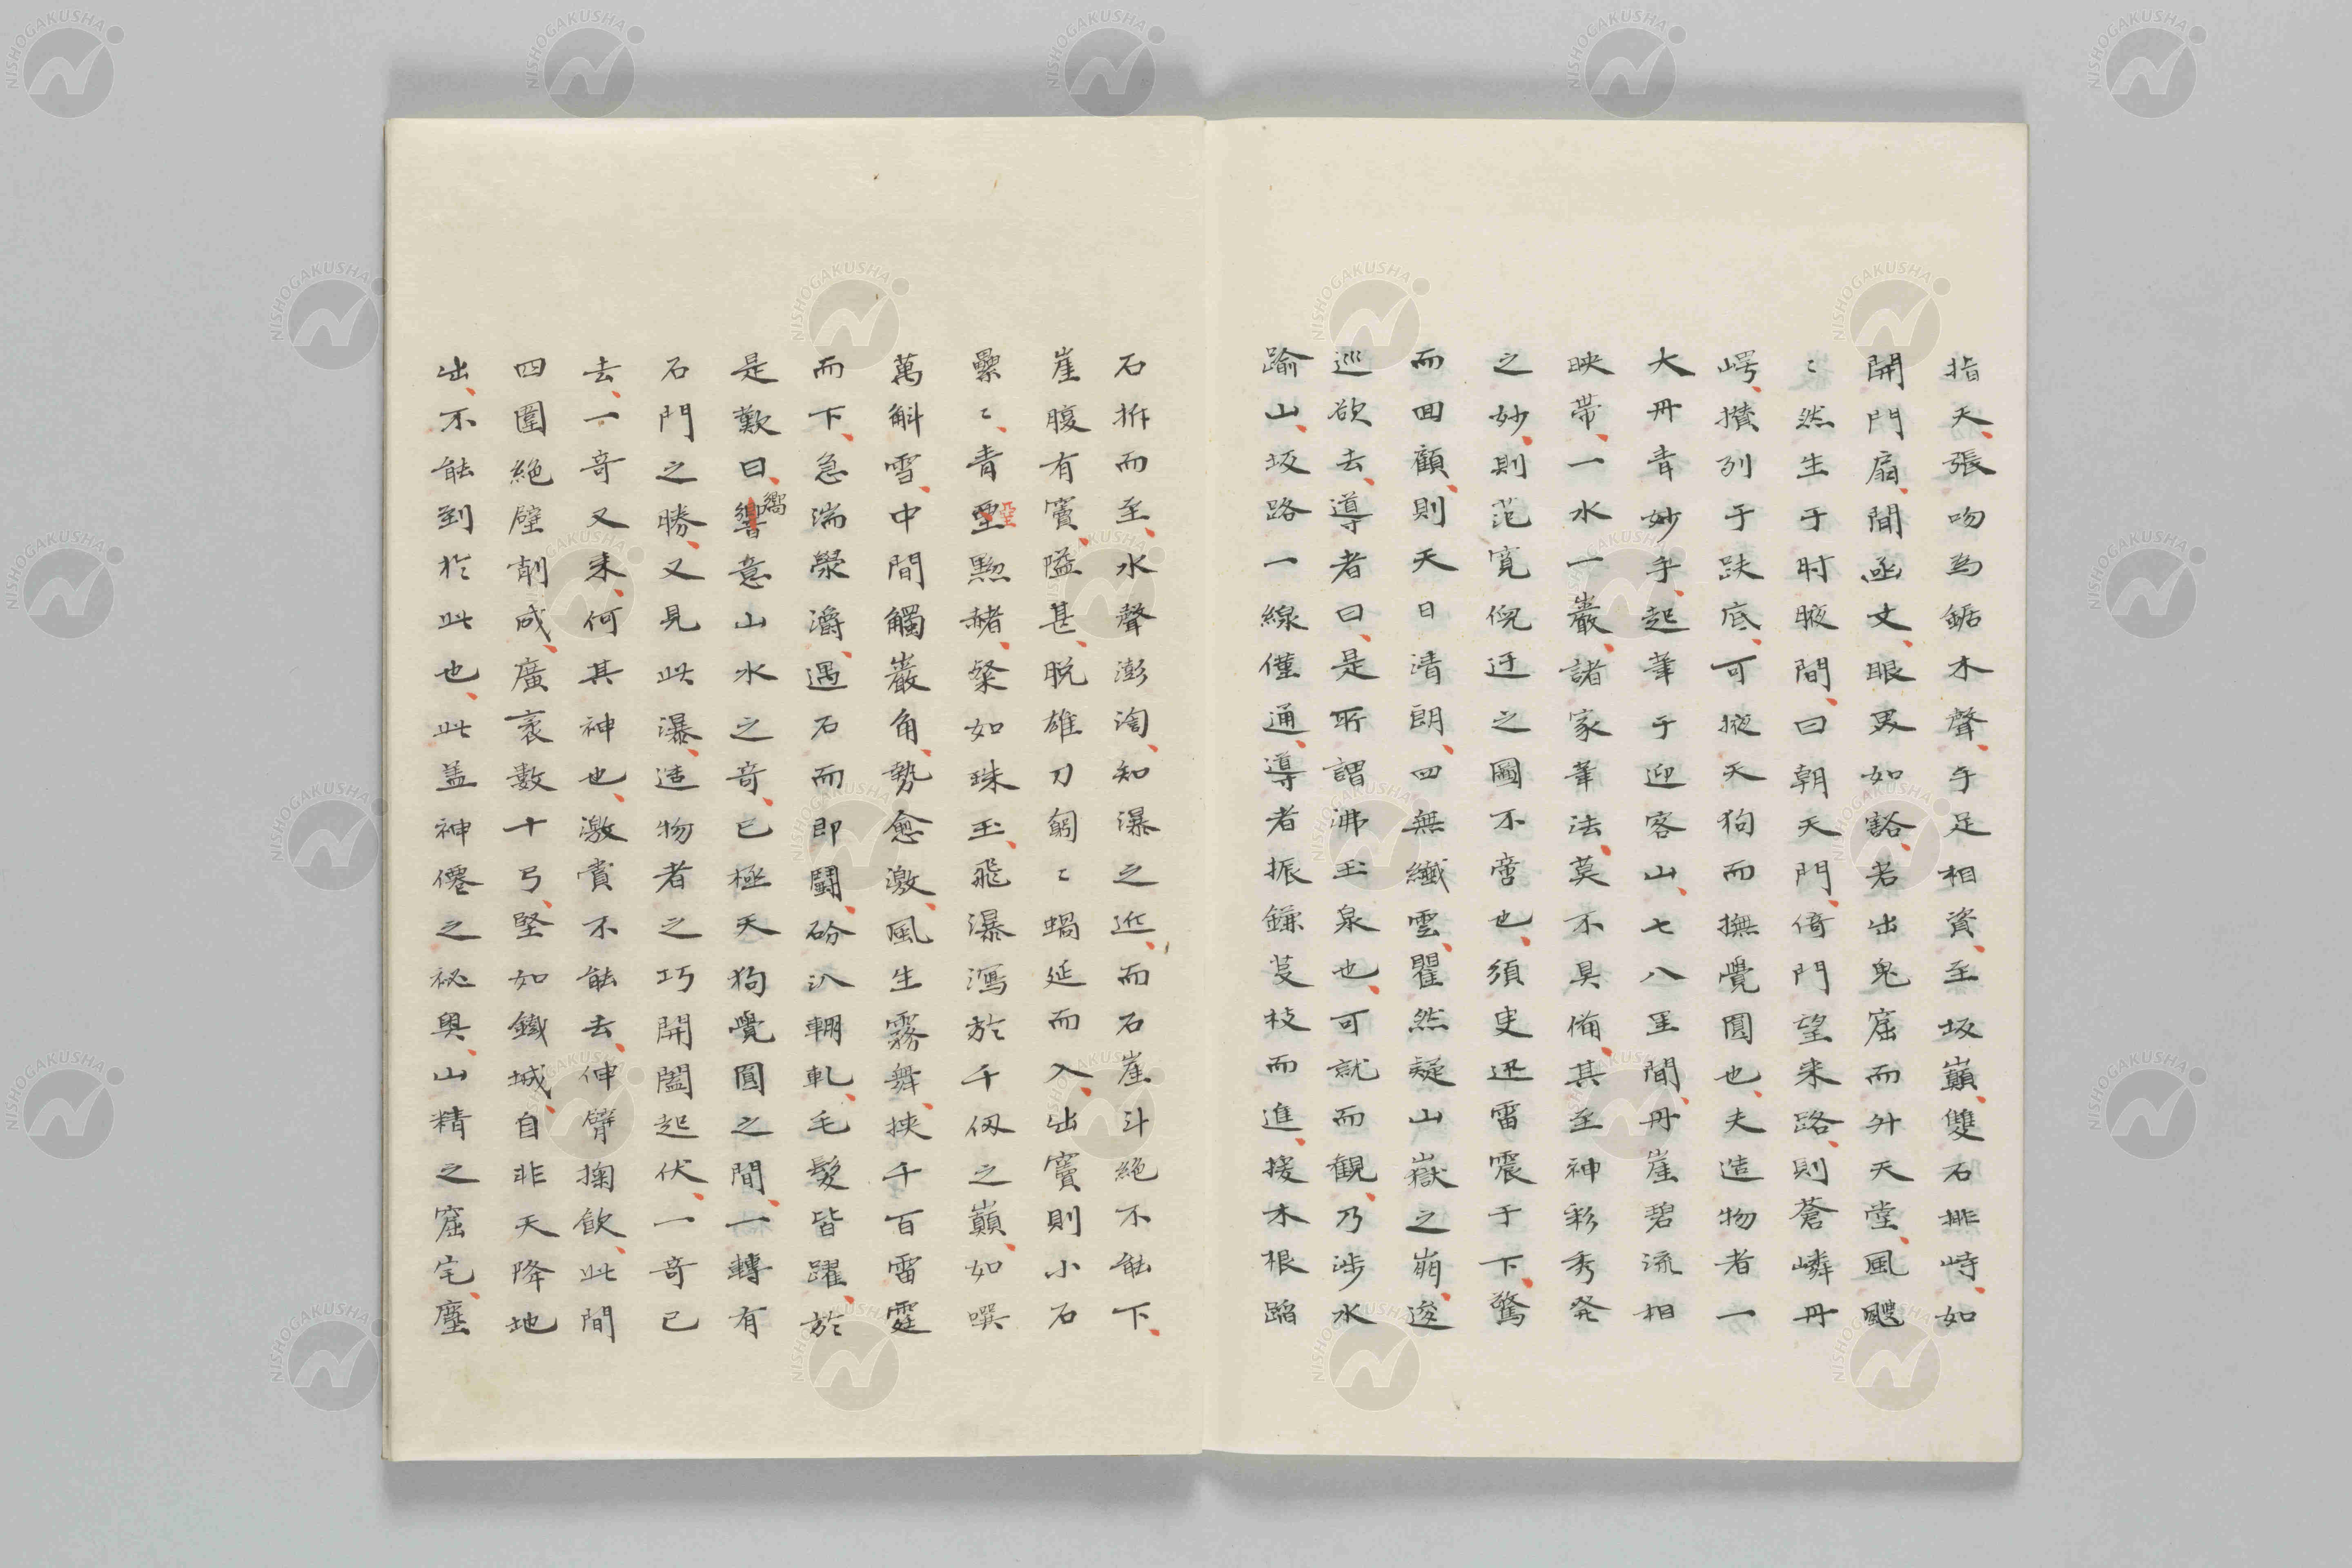 指天張吻為鋸木聲手足相資至坂巔雙石排峙如
開門扇間函丈眼界如豁若出鬼窟而升天堂風颼
〻然生于肘腋間曰朝天門倚門望来路則蒼嶙丹
崿攅列于趺底可掖天狗而撫覺圓也夫造物者一
大丹青妙手起筆于迎客山七八里間丹崖碧流相
映帯一水一巖諸家筆法莫不具備其至神彩秀発
之妙則范寛倪迂之圖不啻也須臾迅雷震于下驚
而回顧則天日清朗四無纖雲瞿然疑山嶽之崩逡
巡欲去導者曰是所謂沸玉泉也可就而観乃渉水
踰山坂路一線僅通導者振鎌芟枝而進援木根蹈
石拆而至水聲澎渹知瀑之近而石崖斗絶不能下
崖腹有竇隘甚脱雄刀匑〻蝸延而入出竇則小石
纍〻青堊黝赭粲如珠玉飛瀑瀉於千仭之巔如噀
萬斛雪中間觸巖角勢愈激風生霧舞挾千百雷霆
而下急湍滎灂遇石而即鬪砏汃輣軋毛髮皆躍於
是歎曰嚮意山水之奇已極天狗覺圓之間一轉有
石門之勝又見此瀑造物者之巧開闔起伏一奇已
去一奇又来何其神也激賞不能去伸臂掬飲此間
四圍絶壁削成廣袤數十弓堅如鐵城自非天降地
出不能到於此也此盖神僊之祕奥山精之窟宅塵
NISHOGAKUSHA